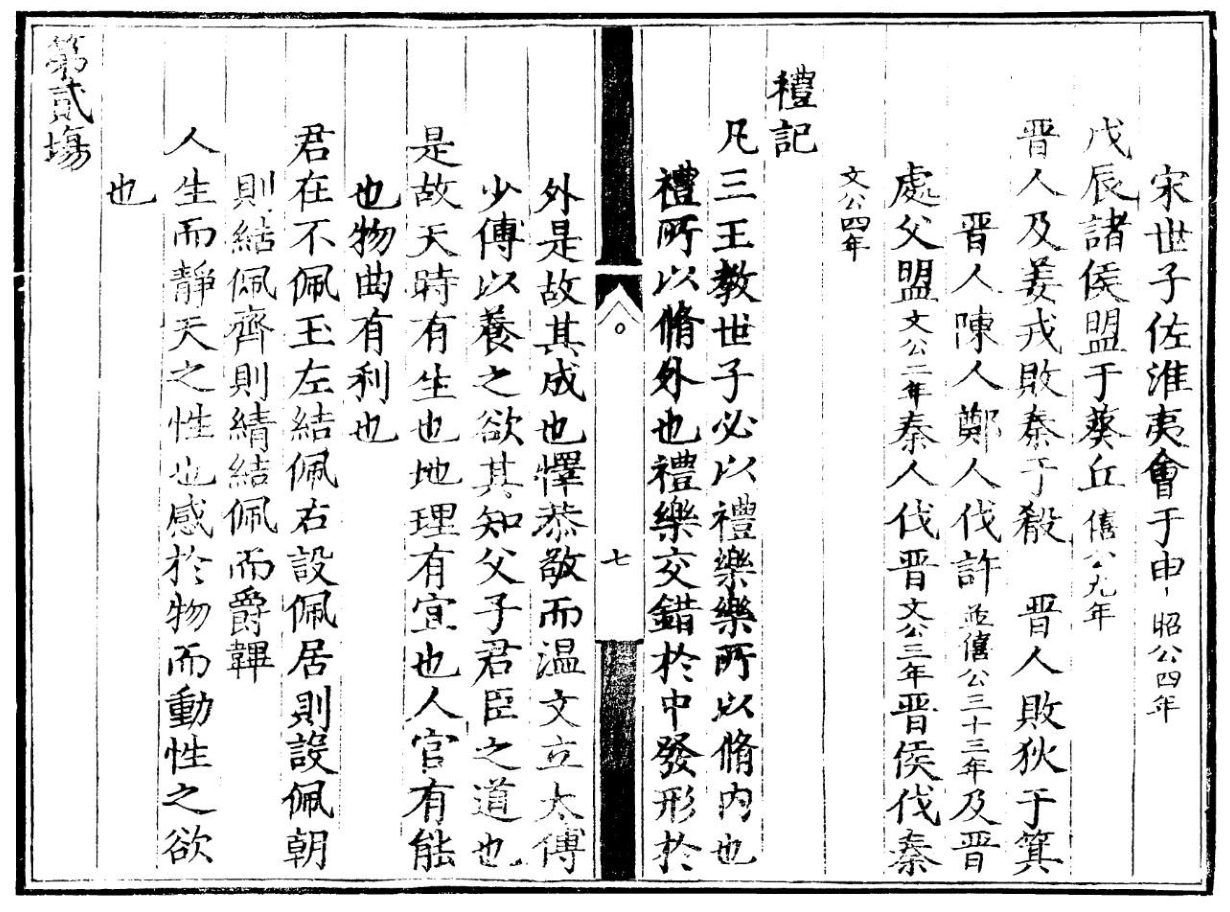 宋世子佐淮夷會于申昭公四年
戊辰諸侯盟于葵丘僖公九年
晋人及姜戎敗秦于殽　晋人敗狄于箕
晋人陳人鄭人伐許並僖公三十三年及晋
處父盟文公二年秦人伐晋文公三年晋侯伐秦
文公四年
禮記
凡三王教世子必以禮樂樂所以脩内也
禮所以脩外也禮樂交錯於中發形於
七
外是故其成也懌恭敬而温文立太傅
少傅以養之欲其知父子君臣之道也
是故天時有生也地理有宜也人官有能
也物曲有利也
君在不佩玉左結佩右設佩居則設佩朝
則結佩齊則綪結佩而爵韠
人生而靜天之性也感於物而動性之欲
也
第貳塲